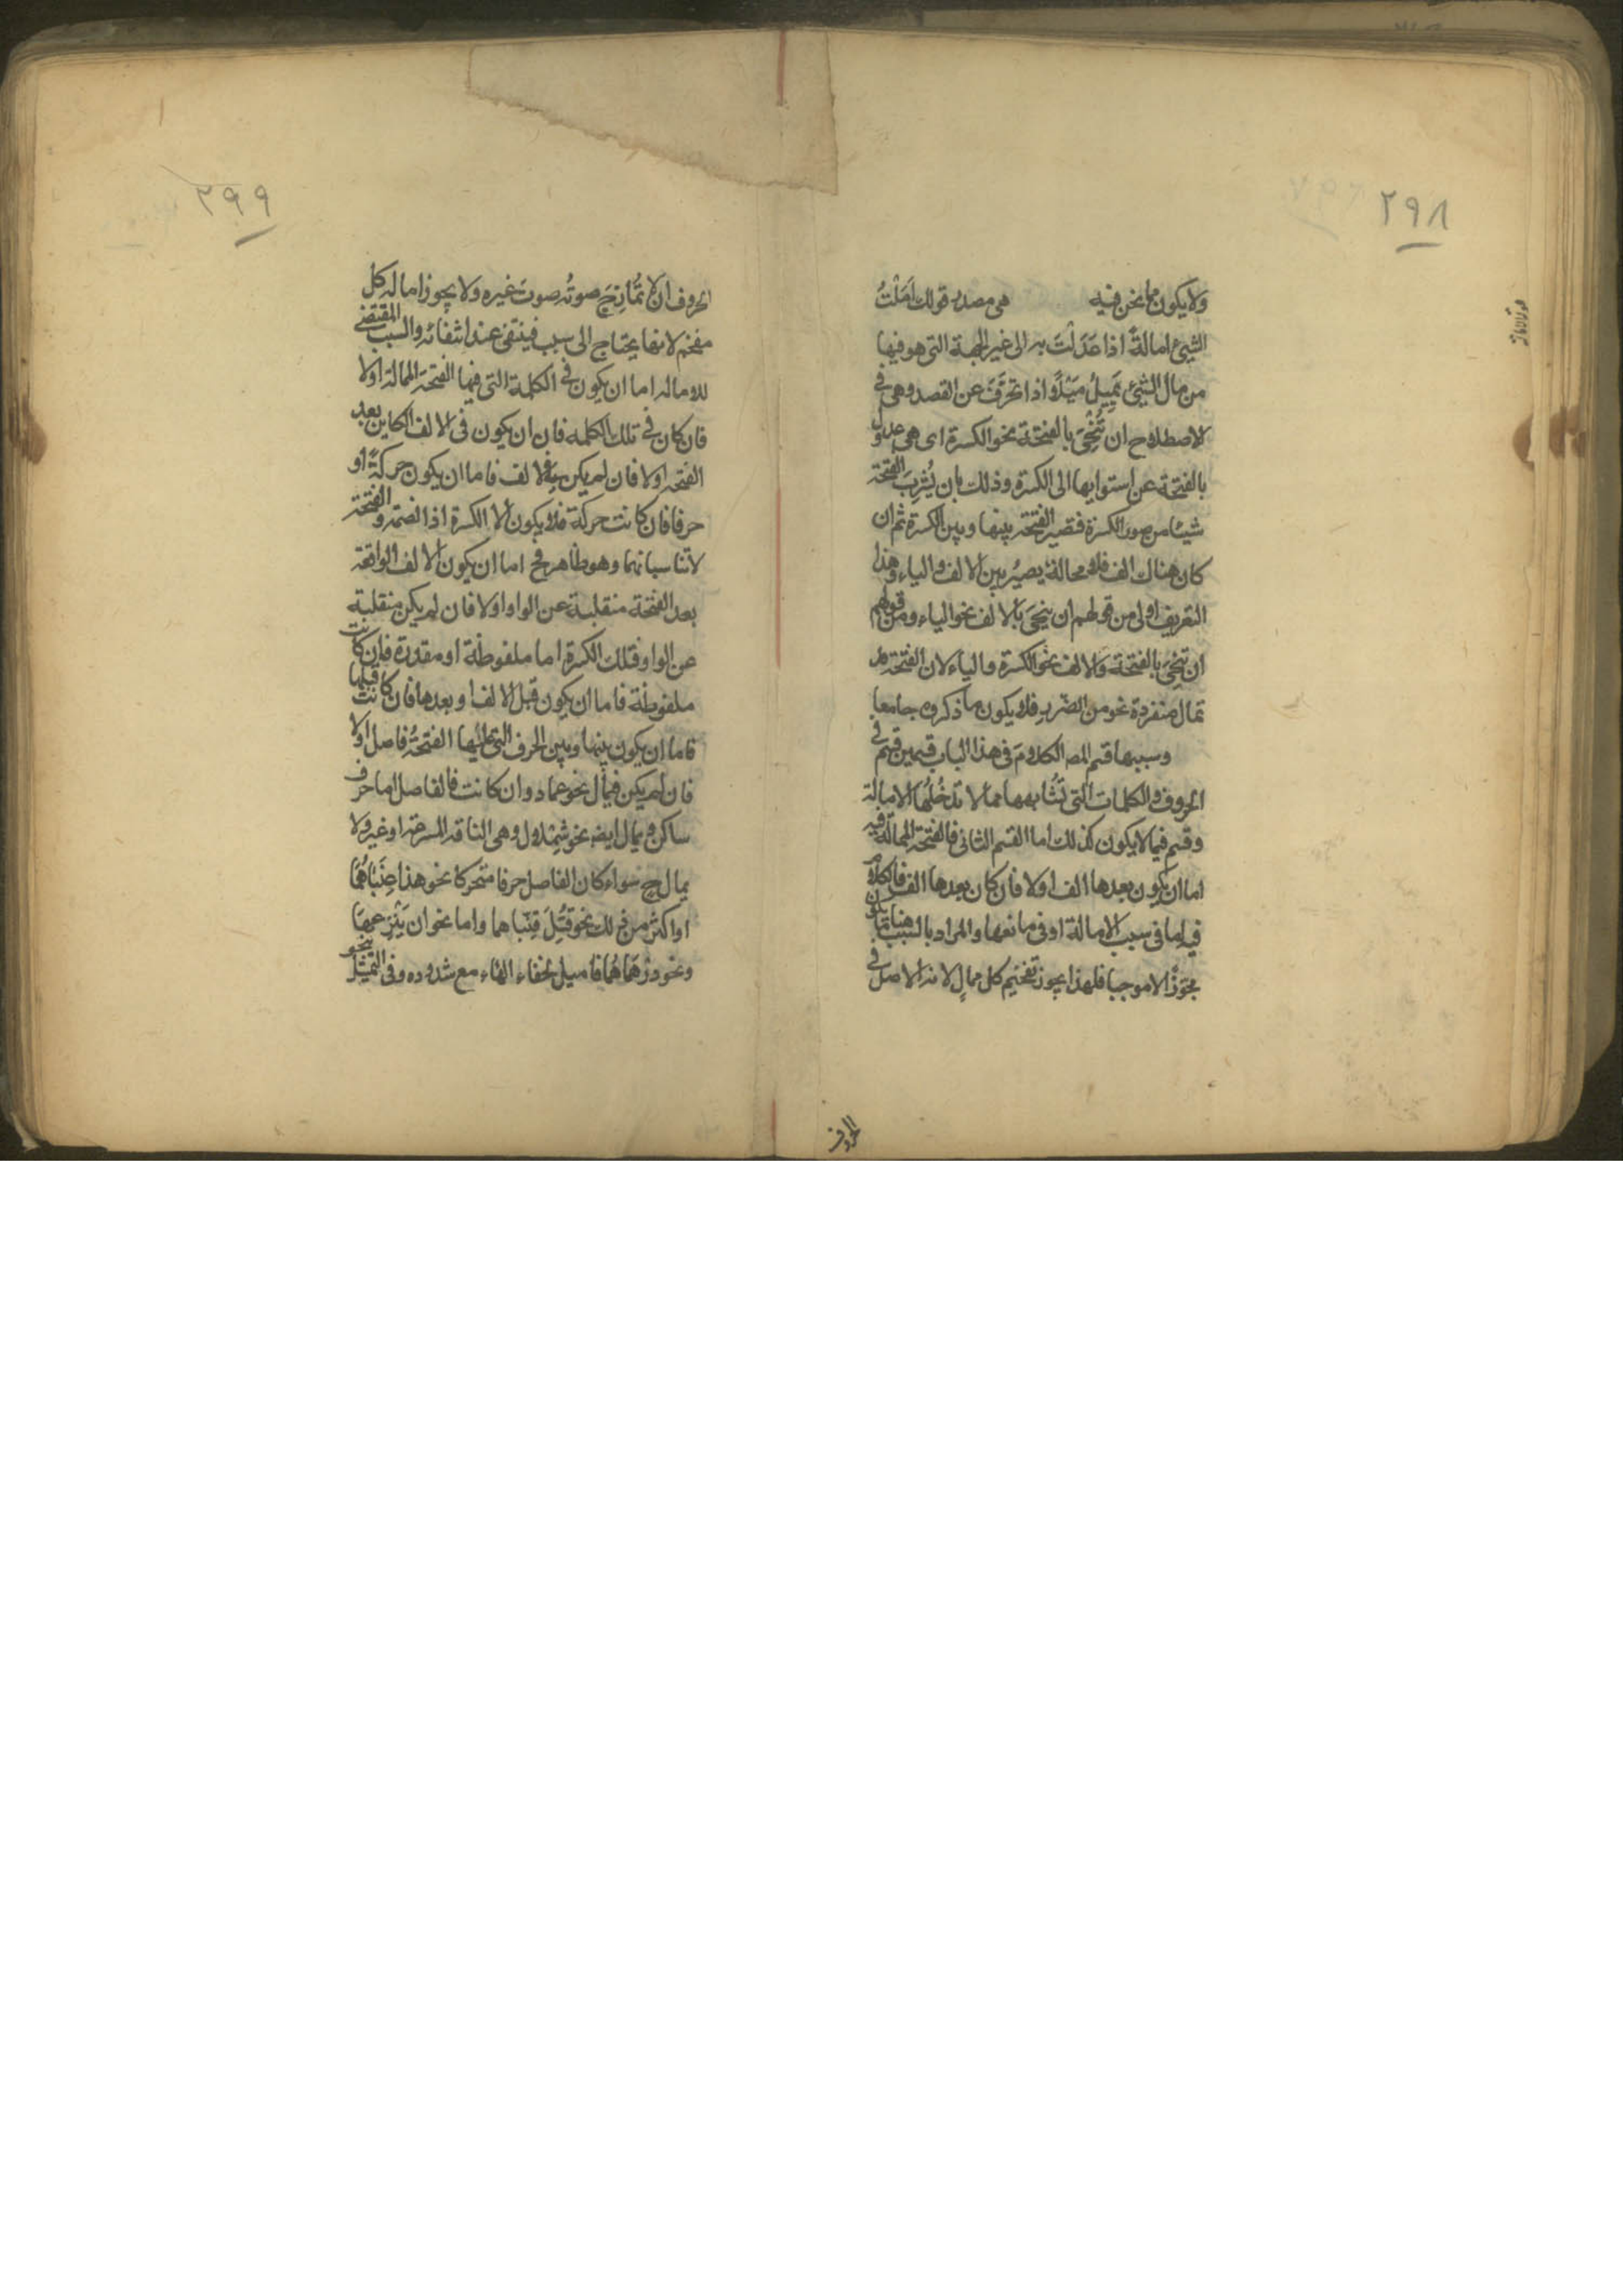 ٢٩٨
ولا يكون مما نحن فيه هى مصدر قولك اَمَلْتُ
الشيئ امالةً اذا عَدَلْتَ به الى غير الجهة التى هو فيها
من مال الشيئ يَمِيلُ مَيْلًا اذا تحرَّفَ عن القصد وهى فى
الاصطلاح ان تُنْحِىَ بالفتحة نحو الكسرة اى هى عدول
بالفتحة عن استوايها الى الكسرة وذلك بان يُشْرِبَ الفتحة
شيئا من صوت الكسرة فتصير الفتحة بينها وبين الكسرة ثم ان
كان هناك الف فلا محالة يصيُر بين الالف والياء وهذا
التعريف اولى من قولهم ان ينحِىَ بالالف نحو الياء ومن قولهم
ان تنحِىَ بالفتحة وَالالف نحو الكسرة والياء لان الفتحة قد
تمال منفردة نحو من الضّررِ فلا يكون ما ذكروه جامعا
وسببها قسم المص الكلامَ فى هذا الباب قسمين قسم فى
الحروف والكلمات التى تُشابهها مما لا تدخُلُها الامالة
وقسم فيما لا يكون كذلك اما القسم الثانى فالفتحة الممالة فيه
اما ان يكون بعدها الف اولا فان كان بعدها الف فالكلام
فيه اما فى سبب الامالة او فى مانعها والمراد بالسبب هنا ما يكون
مجوّزًا لا موجبا فلهذا يجوز تفخيم كل ممالٍ لانه الاصل فى
الحروف
٢٩٩
الحروف ان لا تُمازِجَ صوتُه صوتَ غيره ولا يجوز امالة كل
مفخم لانها يحتاج الى سبب فينتفى عند انتفائه والسبب المقتضى
للامالة اما ان يكون فى الكلمة التى فيها الفتحة الممالة اولا
فان كان فى تلك الكلمة فان ان يكون فى الالف الكاين بعد
الفتحة اولا فان لم يكن فى الالف فاما ان يكون حركةً او
حرفا فان كانت حركة فلا يكون الا الكسرة اذ الضمة والفتحة
لا تناسبانها وهو ظاهر فح اما ان يكون الالف الواقعة
بعد الفتحة منقلبة عن الواو اولا فان لم يكن منقلبة
عن الواو فتلك الكسرة اما ملفوظة او مقدرة فان كانت
ملفوظة فاما ان يكون قبل الالف او بعدها فان كانت قبلها
فاما ان يكون بينها وبين الحرف التى عليها الفتحةُ فاصل اولا
فان لم يكن فيمال نحو عماد وان كانت فالفاصل اما حرف
ساكن ويمال ايض نحو شِمْلال وهى الناقة المسرعة او غيره ولا
يمال ح سواء كان الفاصل حرفا متحركا نحو هذا عِنَبَاهُمَا
او اكثر من ذلك نحو فُتِلَ قِنّباهما واما نحو ان يَنْزِعهَا
ونحو درْهَماهُما فاميل لخفاء الهاء مع شذوذه وفى التمثيل بنحو